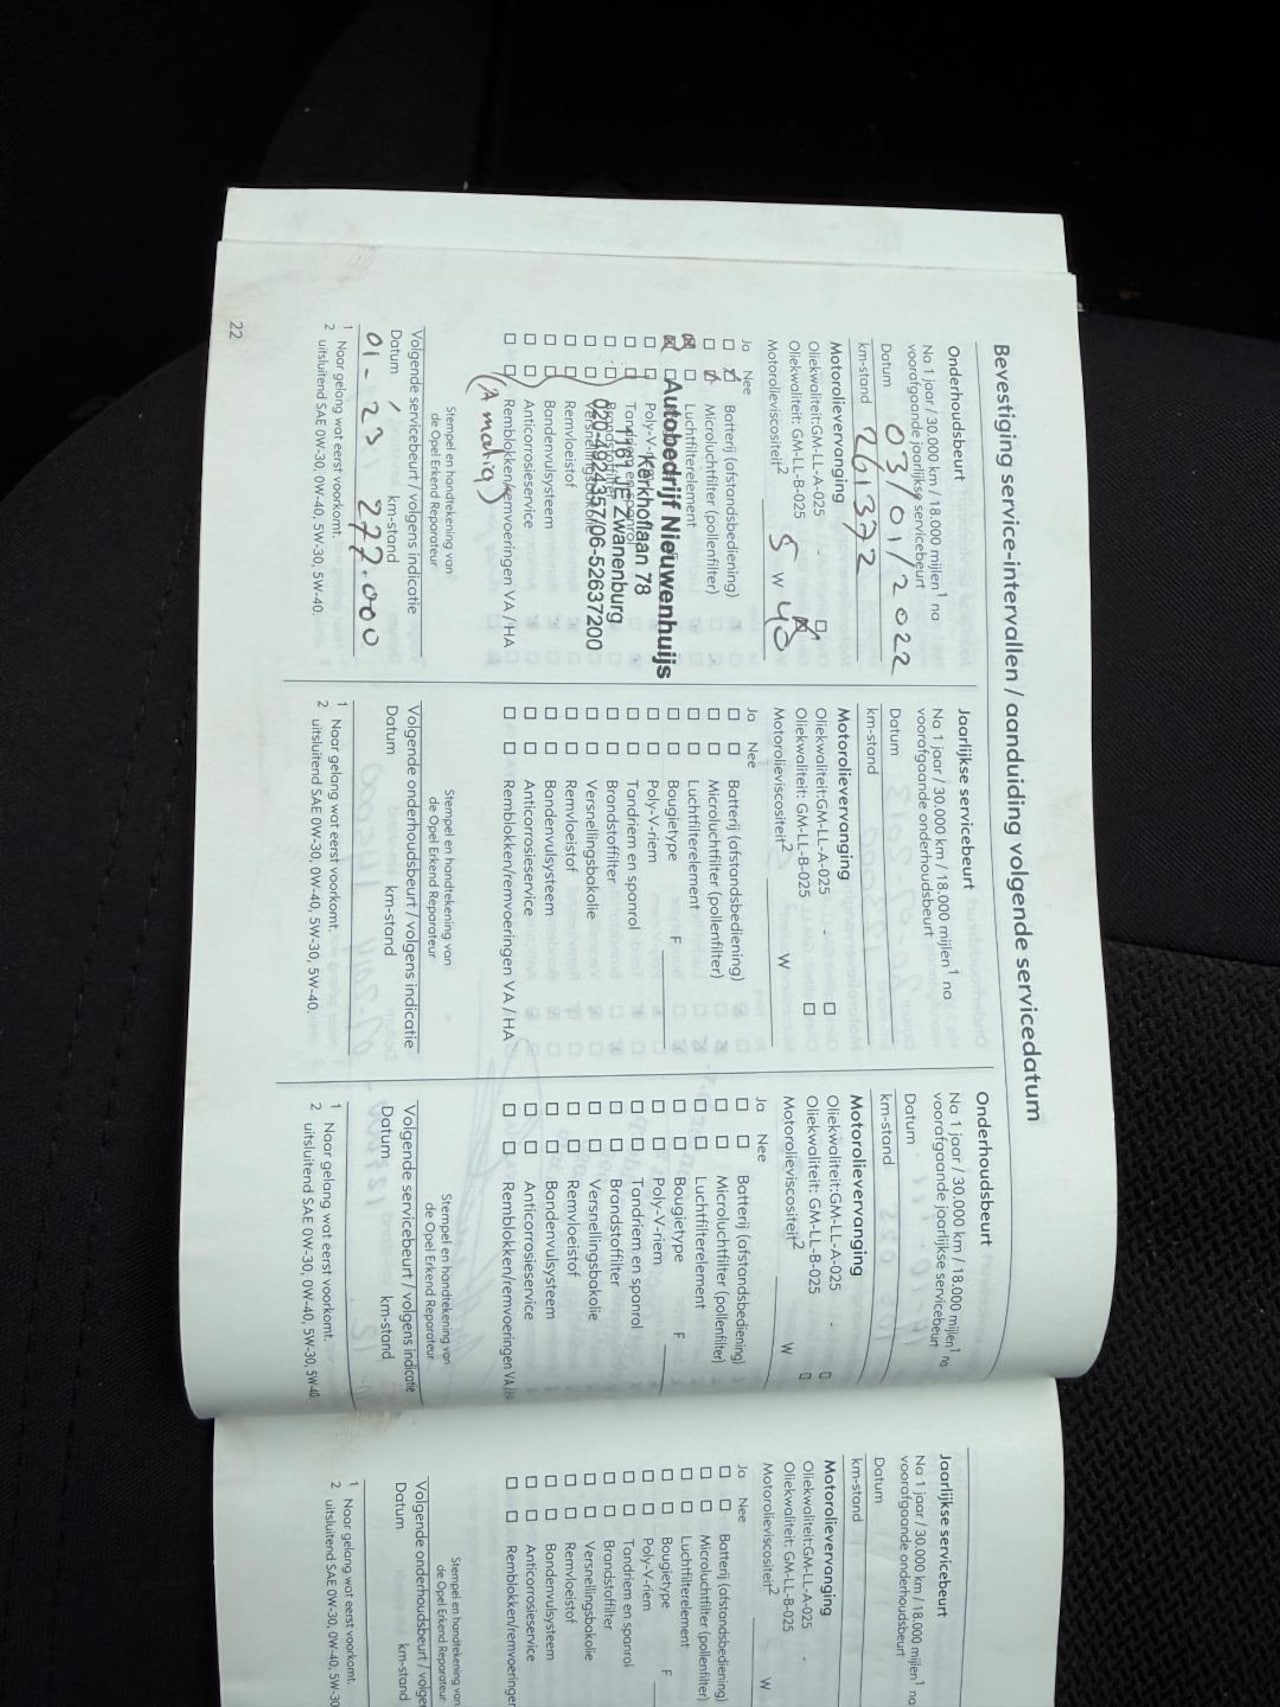 Bevestiging service-intervallen / aanduiding volgende servicedatum
Onderhoudsbeurt
Na 1 jaar / 30.000 km / 18.000 mijlen¹ na
voorafgaande jaarlijkse servicebeurt
Datum 03/01/2022
km-stand 261372
Motorolievervanging
Oliekwaliteit:GM-LL-A-025 - □
Oliekwaliteit: GM-LL-B-025 ☒
Motorolieviscositeit² 5 W 40
Ja Nee
□ ☒ Batterij (afstandsbediening)
□ ☒ Microluchtfilter (pollenfilter)
☒ □ Luchtfilterelement
☒ □
□ □ Poly-V-riem
□ □ Tandriem en spanrol
□ □ Brandstoffilter
□ □ Versnellingsbakolie
□ □ Remvloeistof
□ □ Bandenvulsysteem
□ □ Anticorrosieservice
□ □ Remblokken/remvoeringen VA / HA
Autobedrijf Nieuwenhuijs
Kerkhoflaan 78
1161 JE Zwanenburg
020-4924357/06-52637200
(Amatig)
Stempel en handtekening van
de Opel Erkend Reparateur
Volgende servicebeurt / volgens indicatie
Datum km-stand
01-23 277.000
1 Naar gelang wat eerst voorkomt.
2 uitsluitend SAE 0W-30, 0W-40, 5W-30, 5W-40.
22
Jaarlijkse servicebeurt
Na 1 jaar / 30.000 km / 18.000 mijlen¹ na
voorafgaande onderhoudsbeurt
Datum
km-stand
Motorolievervanging
Oliekwaliteit:GM-LL-A-025 - □
Oliekwaliteit: GM-LL-B-025 □
Motorolieviscositeit² W
Ja Nee
□ □ Batterij (afstandsbediening)
□ □ Microluchtfilter (pollenfilter)
□ □ Luchtfilterelement
□ □ Bougietype F
□ □ Poly-V-riem
□ □ Tandriem en spanrol
□ □ Brandstoffilter
□ □ Versnellingsbakolie
□ □ Remvloeistof
□ □ Bandenvulsysteem
□ □ Anticorrosieservice
□ □ Remblokken/remvoeringen VA / HA
Stempel en handtekening van
de Opel Erkend Reparateur
Volgende onderhoudsbeurt / volgens indicatie
Datum km-stand
1 Naar gelang wat eerst voorkomt.
2 uitsluitend SAE 0W-30, 0W-40, 5W-30, 5W-40.
Onderhoudsbeurt
Na 1 jaar / 30.000 km / 18.000 mijlen¹ na
voorafgaande jaarlijkse servicebeurt
Datum
km-stand
Motorolievervanging
Oliekwaliteit:GM-LL-A-025 - □
Oliekwaliteit: GM-LL-B-025 □
Motorolieviscositeit² W
Ja Nee
□ □ Batterij (afstandsbediening)
□ □ Microluchtfilter (pollenfilter)
□ □ Luchtfilterelement
□ □ Bougietype F
□ □ Poly-V-riem
□ □ Tandriem en spanrol
□ □ Brandstoffilter
□ □ Versnellingsbakolie
□ □ Remvloeistof
□ □ Bandenvulsysteem
□ □ Anticorrosieservice
□ □ Remblokken/remvoeringen VA /
Stempel en handtekening van
de Opel Erkend Reparateur
Volgende servicebeurt / volgens indicatie
Datum km-stand
1 Naar gelang wat eerst voorkomt.
2 uitsluitend SAE 0W-30, 0W-40, 5W-30, 5W-40
Jaarlijkse servicebeurt
Na 1 jaar / 30.000 km / 18.000 mijlen¹ na
voorafgaande onderhoudsbeurt
Datum
km-stand
Motorolievervanging
Oliekwaliteit:GM-LL-A-025 -
Oliekwaliteit: GM-LL-B-025
Motorolieviscositeit² W
Ja Nee
□ □ Batterij (afstandsbediening)
□ □ Microluchtfilter (pollenfilter)
□ □ Luchtfilterelement
□ □ Bougietype F
□ □ Poly-V-riem
□ □ Tandriem en spanrol
□ □ Brandstoffilter
□ □ Versnellingsbakolie
□ □ Remvloeistof
□ □ Bandenvulsysteem
□ □ Anticorrosieservice
□ □ Remblokken/remvoeringen
Stempel en handtekening van
de Opel Erkend Reparateur
Volgende onderhoudsbeurt / volge
Datum km-stand
1 Naar gelang wat eerst voorkomt.
2 uitsluitend SAE 0W-30, 0W-40, 5W-30